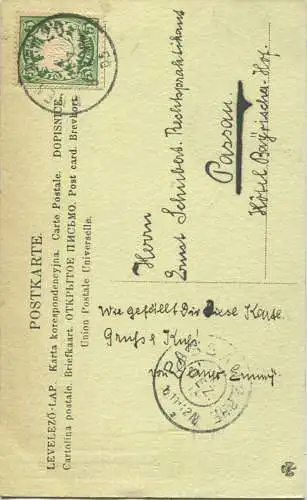 POSTKARTE.
LEVELEZŐ-LAP. Karta korespondencyjna. Carte Postale. DOPISNICE.
Cartolina postale. Briefkaart. ОТКРЫТОЕ ПИСЬМО. Post card. Brevkort.
Union Postale Universelle.
Herrn
Ernst Schubert. Rechtspraktikant
Passau.
Hôtel Bayrischer-Hof.
Wie gefällt Dir diese Karte
Gruß & Kuß
von Deiner Emmy